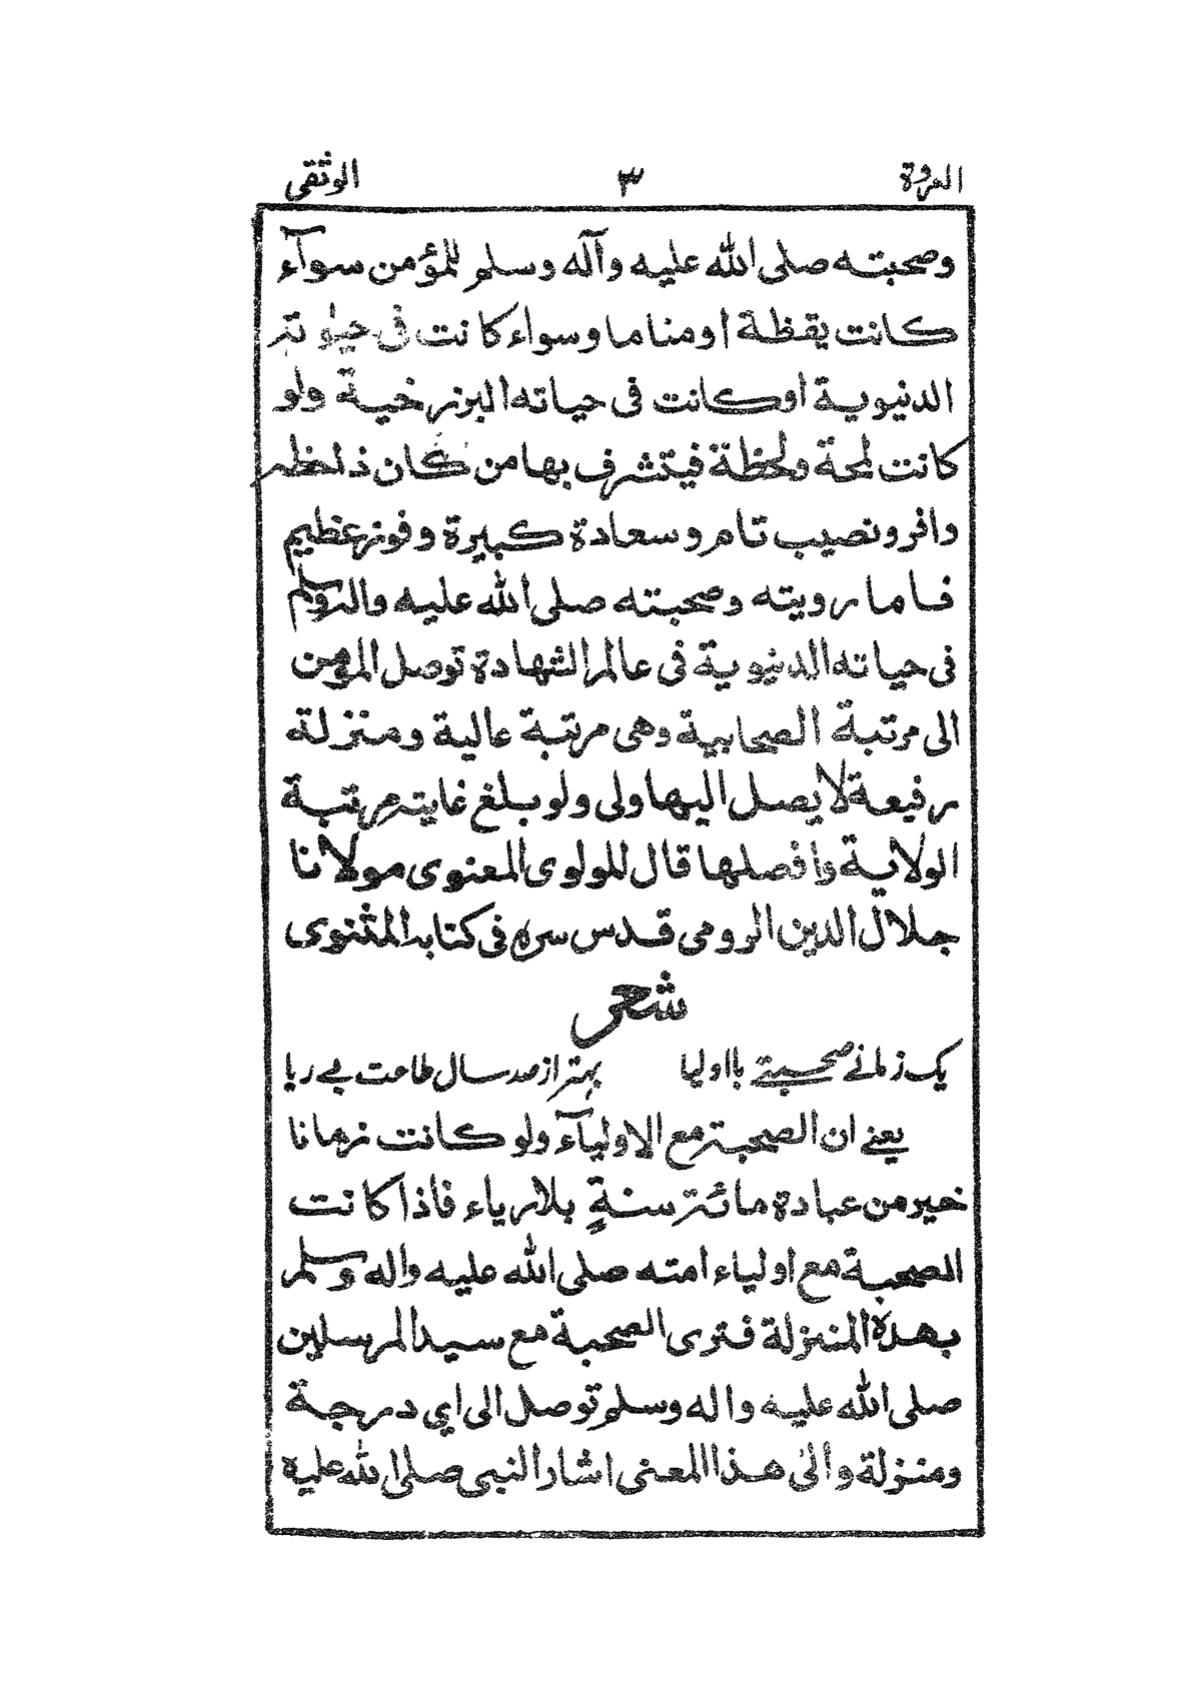 العروة ٣ الوثقى
وصحبته صلى الله عليه وآله وسلم للمؤمن سوآء
كانت يقظة اومناما وسواء كانت فى حيوته
الدنيوية اوكانت فى حياته البرزخية ولو
كانت لمحة ولحظة فيتشرف بها من كان ذا حظ
وافر ونصيب تام وسعادة كبيرة وفوز عظيم
فاما رويته وصحبته صلى الله عليه واله وسلم
فى حياته الدنيوية فى عالم الشهادة توصل المؤمن
الى مرتبة الصحابية وهى مرتبة عالية ومنزلة
رفيعة لا يصل اليها ولى ولو بلغ غاية مرتبة
الولاية وافضلها قال للولوى المعنوى مولانا
جلال الدين الرومى قدس سره فى كتابه المثنوى
شعر
یک زمانے صحبتے با اولیا بہتر از صد سال طاعت بے ریا
يعنے ان الصحبة مع الاوليآء ولو كانت زمانا
خير من عبادة مائة سنةٍ بلا رياء فاذا كانت
الصحبة مع اولياء امته صلى الله عليه واله وسلم
بهذه المنزلة فترى الصحبة مع سيد المرسلين
صلى الله عليه واله وسلم توصل الى اي درجة
ومنزلة والى هذا المعنى اشار النبى صلى الله عليه